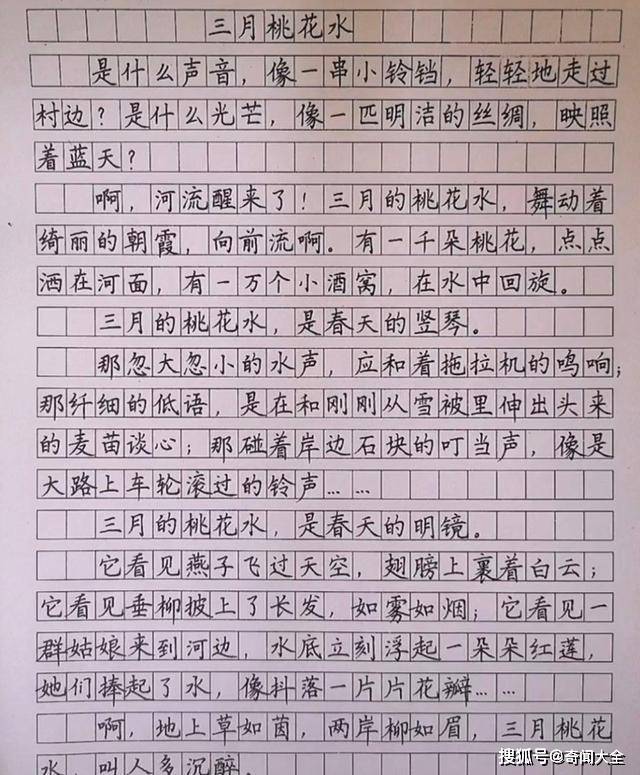 三月桃花水
是什么声音，像一串小铃铛，轻轻地走过
村边？是什么光芒，像一匹明洁的丝绸，映照
着蓝天？
啊，河流醒来了！三月的桃花水，舞动着
绮丽的朝霞，向前流啊。有一千朵桃花，点点
洒在河面，有一万个小酒窝，在水中回旋。
三月的桃花水，是春天的竖琴。
那忽大忽小的水声，应和着拖拉机的鸣响；
那纤细的低语，是在和刚刚从雪被里伸出头来
的麦苗谈心；那碰着岸边石块的叮当声，像是
大路上车轮滚过的铃声……
三月的桃花水，是春天的明镜。
它看见燕子飞过天空，翅膀上裹着白云；
它看见垂柳披上了长发，如雾如烟；它看见一
群姑娘来到河边，水底立刻浮起一朵朵红莲，
她们捧起了水，像抖落一片片花瓣……
啊，地上草如茵，两岸柳如眉，三月桃花
水，叫人多沉醉。
搜狐号@奇闻大全